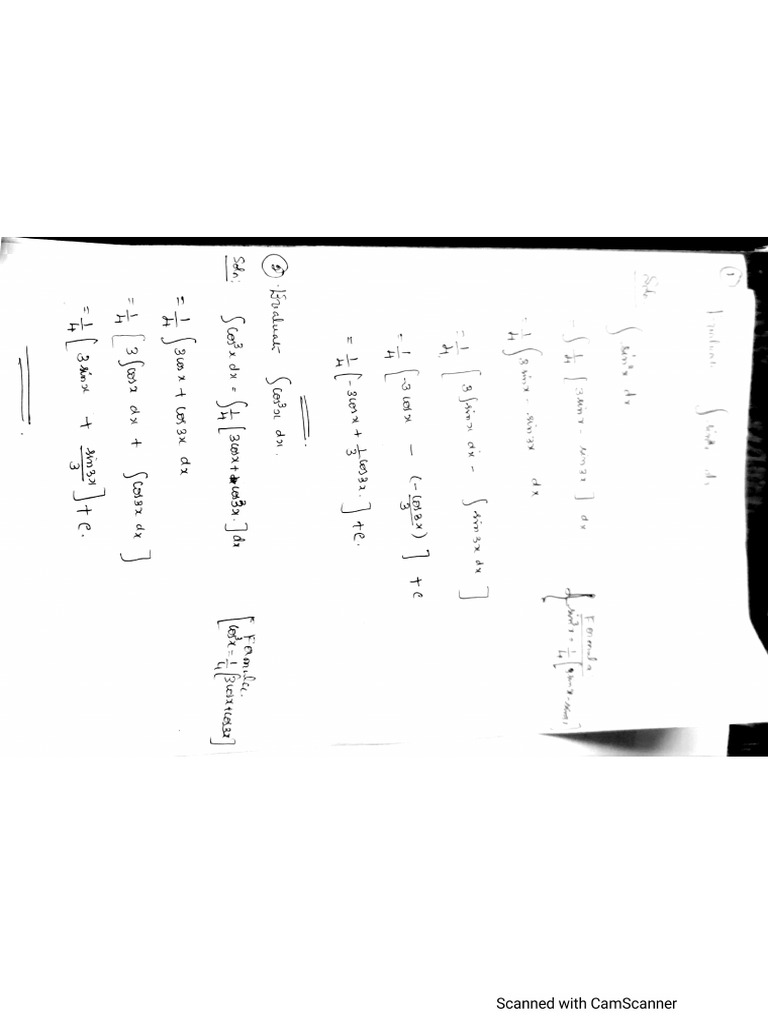 ① Evaluate ∫ sin³x dx
Soln:
∫ sin³x dx
= ∫ 1/4 [3sinx - sin3x] dx
Formula
sin³x = 1/4 [3sinx - sin
= 1/4 ∫ 3sinx - sin3x dx
= 1/4 [3∫sinx dx - ∫sin3x dx]
= 1/4 [-3cosx - (-cos3x/3)] + c
= 1/4 [-3cosx + 1/3 cos3x.] + c.
②. Evaluate ∫cos³x dx.
Soln: ∫cos³x dx = ∫1/4 [3cosx + cos3x.] dx
Formula.
[cos³x = 1/4 [3cosx+cos3x]
= 1/4 ∫ 3cosx + cos3x dx
= 1/4 [3∫cosx dx + ∫cos3x dx]
= 1/4 [3sinx + sin3x/3] + c.
Scanned with CamScanner